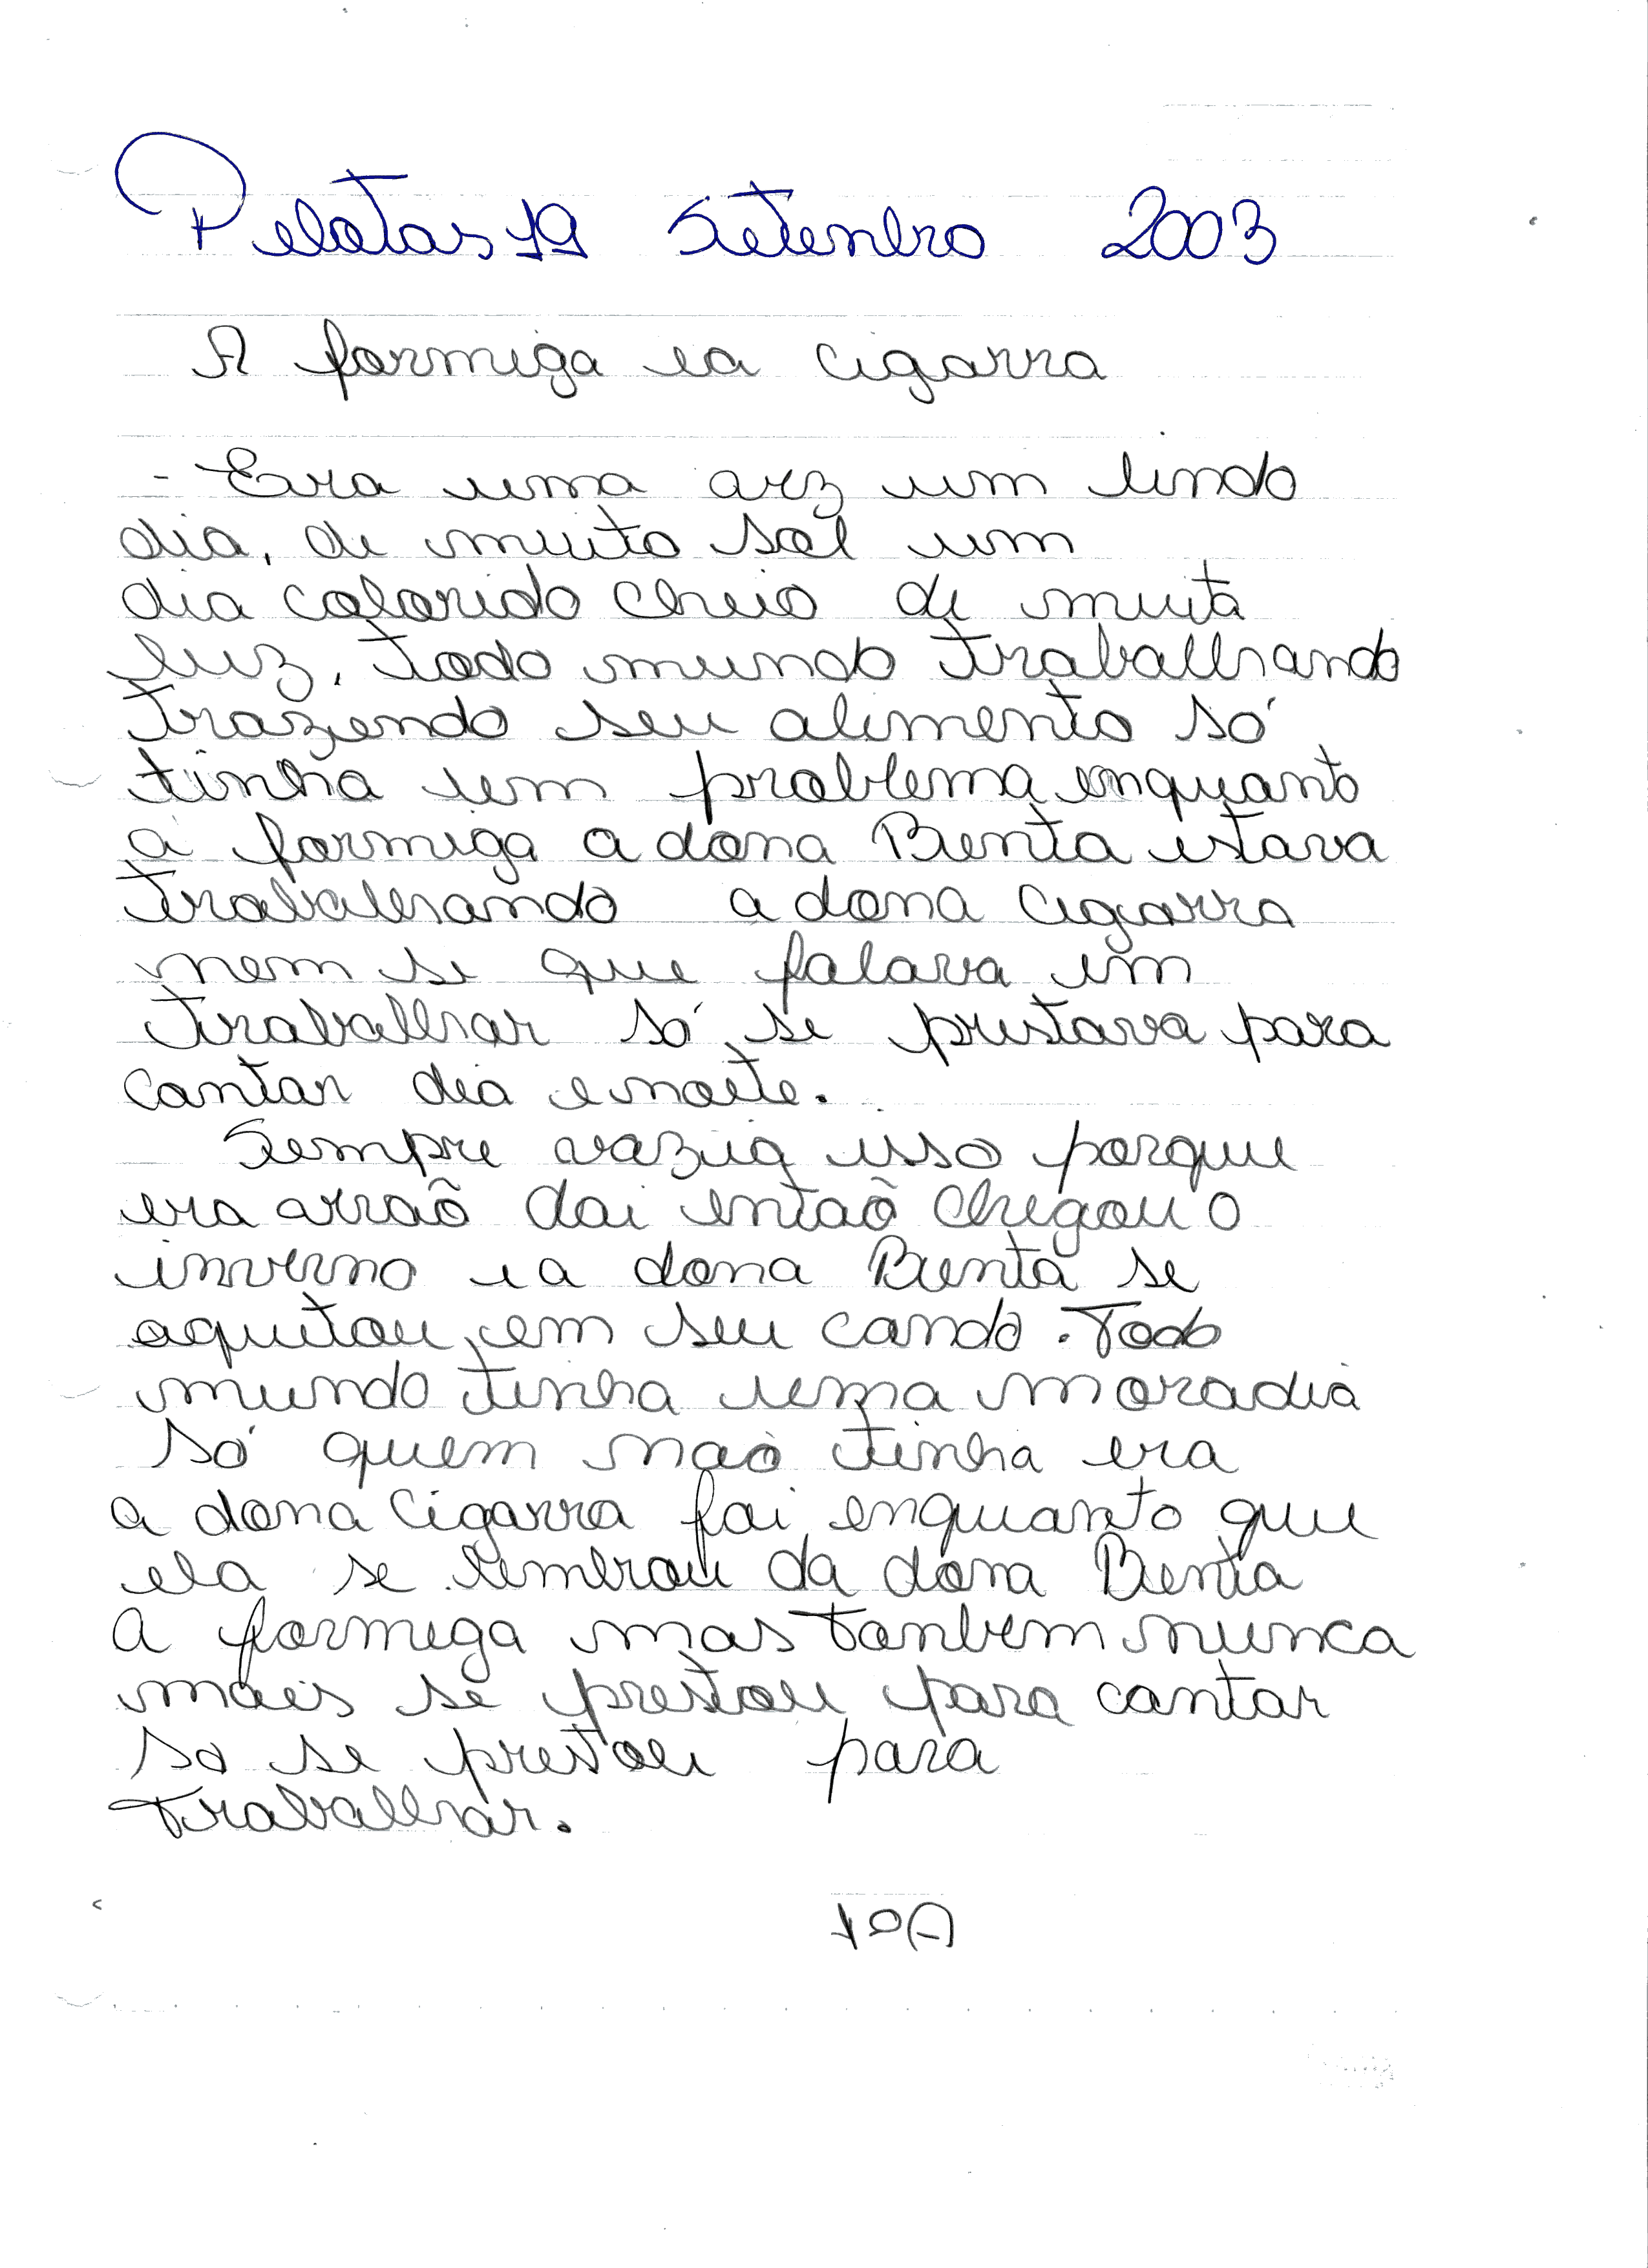 Pelotas 19 Setembro 2003
A formiga ea cigarra
- Era uma vez um lindo
dia, de muito sol um
dia colorido cheio de muita
luz, todo mundo trabalhando
trazendo seu alimento só
tinha um problema enquanto
a formiga a dona Benta estava
trabalhando a dona cigarra
nem se que falava em
trabalhar só se prestava para
cantar dia enoite.
Sempre vazia isso porque
era arraõ dai entaõ chegou o
inverno ea dona Benta se
aquitou em seu cando. Todo
mundo tinha uma moradia
só quem não tinha era
a dona cigarra foi enquanto que
ela se lembrou da dona Benta
a formiga mas tanbem nunca
mais se prestou para cantar
so se prestou para
trabalhar.